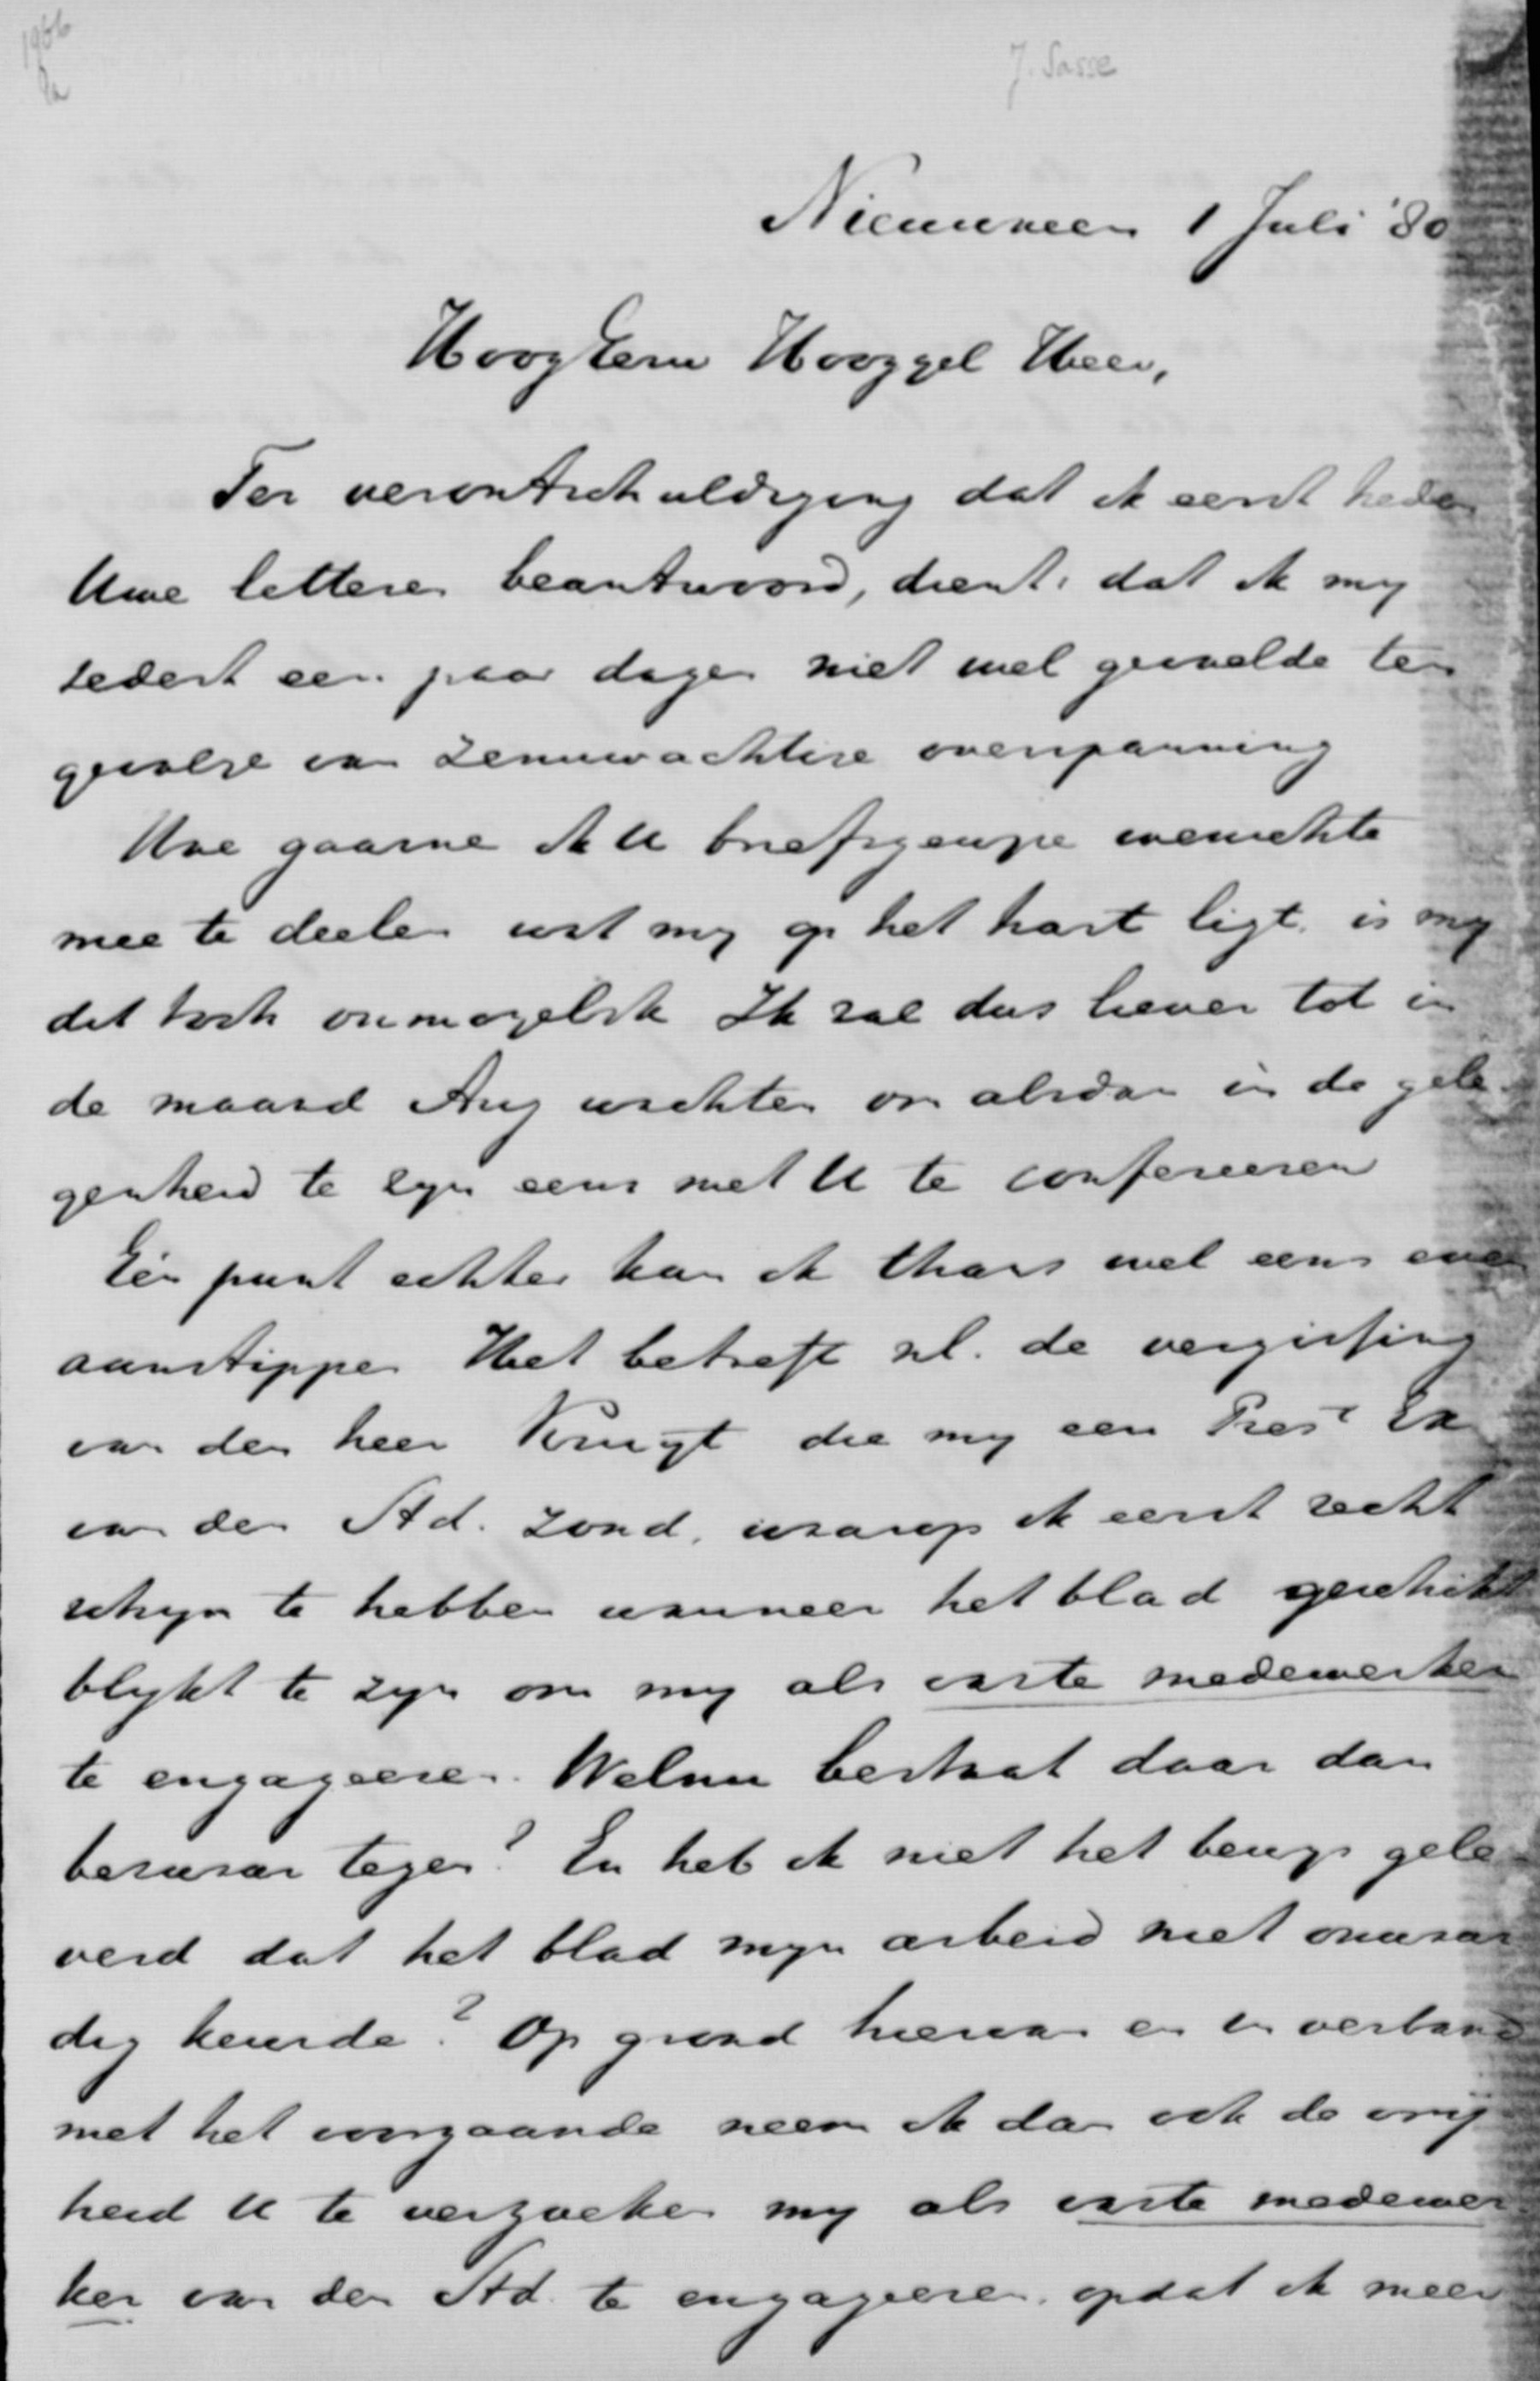 J. Sasse
Nieuwveen 1 Juli '80
HoogEerw Hooggel Heer,
Ter verontschuldiging dat ik eerst heden
Uwe letteren beantwoord, dient dat ik my
sedert een paar dagen niet wel gevoelde ten
gevolge van zenuwachtige overspanning
Hoe gaarne ik U briefsgewyze wenschte
mee te deelen wat my op het hart ligt, is my
dit toch onmogelyk Ik zal dus liever tot in
de maand Aug wachten om alsdan in de gele-
genheid te zyn eens met U te confereeren
Eén punt echter kan ik thans wel eens even
aanstippen Het betreft nl. de vergissing
van den heer Kruyt die my een Pres. Ex
van den Std. zond, waarop ik eerst recht
schyn te hebben wanneer het blad geschikt
blykt te zyn om my als vaste medewerker
te engageeren. Welnu bestaat daar dan
bezwaar tegen? En heb ik niet het bewys gele-
verd dat het blad myn arbeid niet onwaar
dig keurde? Op grond hiervan en in verband
met het voorgaande neem ik dan ook de vry
heid U te verzoeken my als vaste medewer
ker van den Std. te engageeren, opdat ik meer